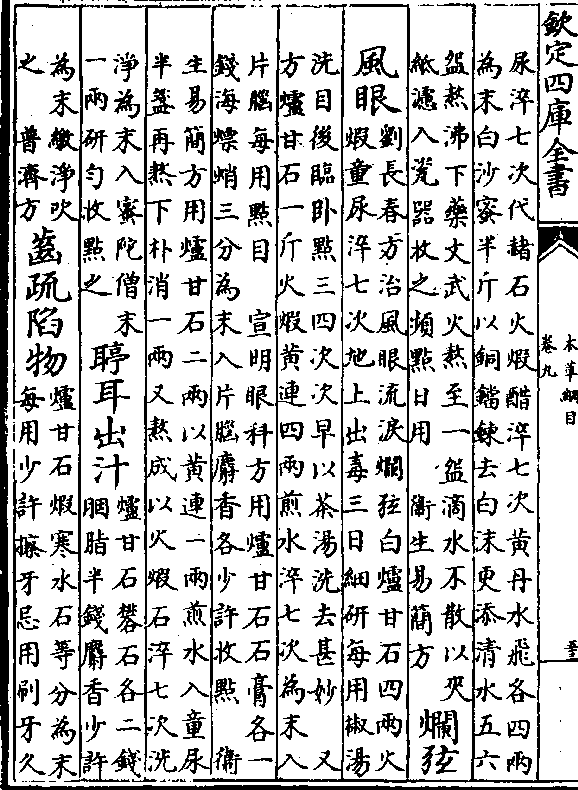 欽定四庫全書
本草綱目
卷九
尿淬七次代赭石火煆醋淬七次黃丹水飛各四兩
為末白沙蜜半斤以銅鐺鍊去白沫更添清水五六
盌熬沸下藥文武火熬至一盌滴水不散以夾
紙濾入瓷器收之頻點日用 衛生易簡方
爛弦
風眼
劉長春方治風眼流淚爛弦白爐甘石四兩火
煆童尿淬七次地上出毒三日細研每用椒湯
洗目後臨卧點三四次次早以茶湯洗去甚妙 又
方爐甘石一斤火煆黃連四兩煎水淬七次為末入
片腦每用點目 宣明眼科方用爐甘石石膏各一
錢海螵蛸三分為末入片腦麝香各少許收點 衛
生易簡方用爐甘石二兩以黃連一兩煎水入童尿
半盞再熬下朴消一兩又熬成以火煆石淬七次洗
淨為末入蜜陀僧末
一兩研匀收點之
聤耳出汁
爐甘石礬石各二錢
胭脂半錢麝香少許
為末繳淨吹
之 普濟方
齒疏陷物
爐甘石煆寒水石等分為末
每用少許擦牙忌用刷牙久